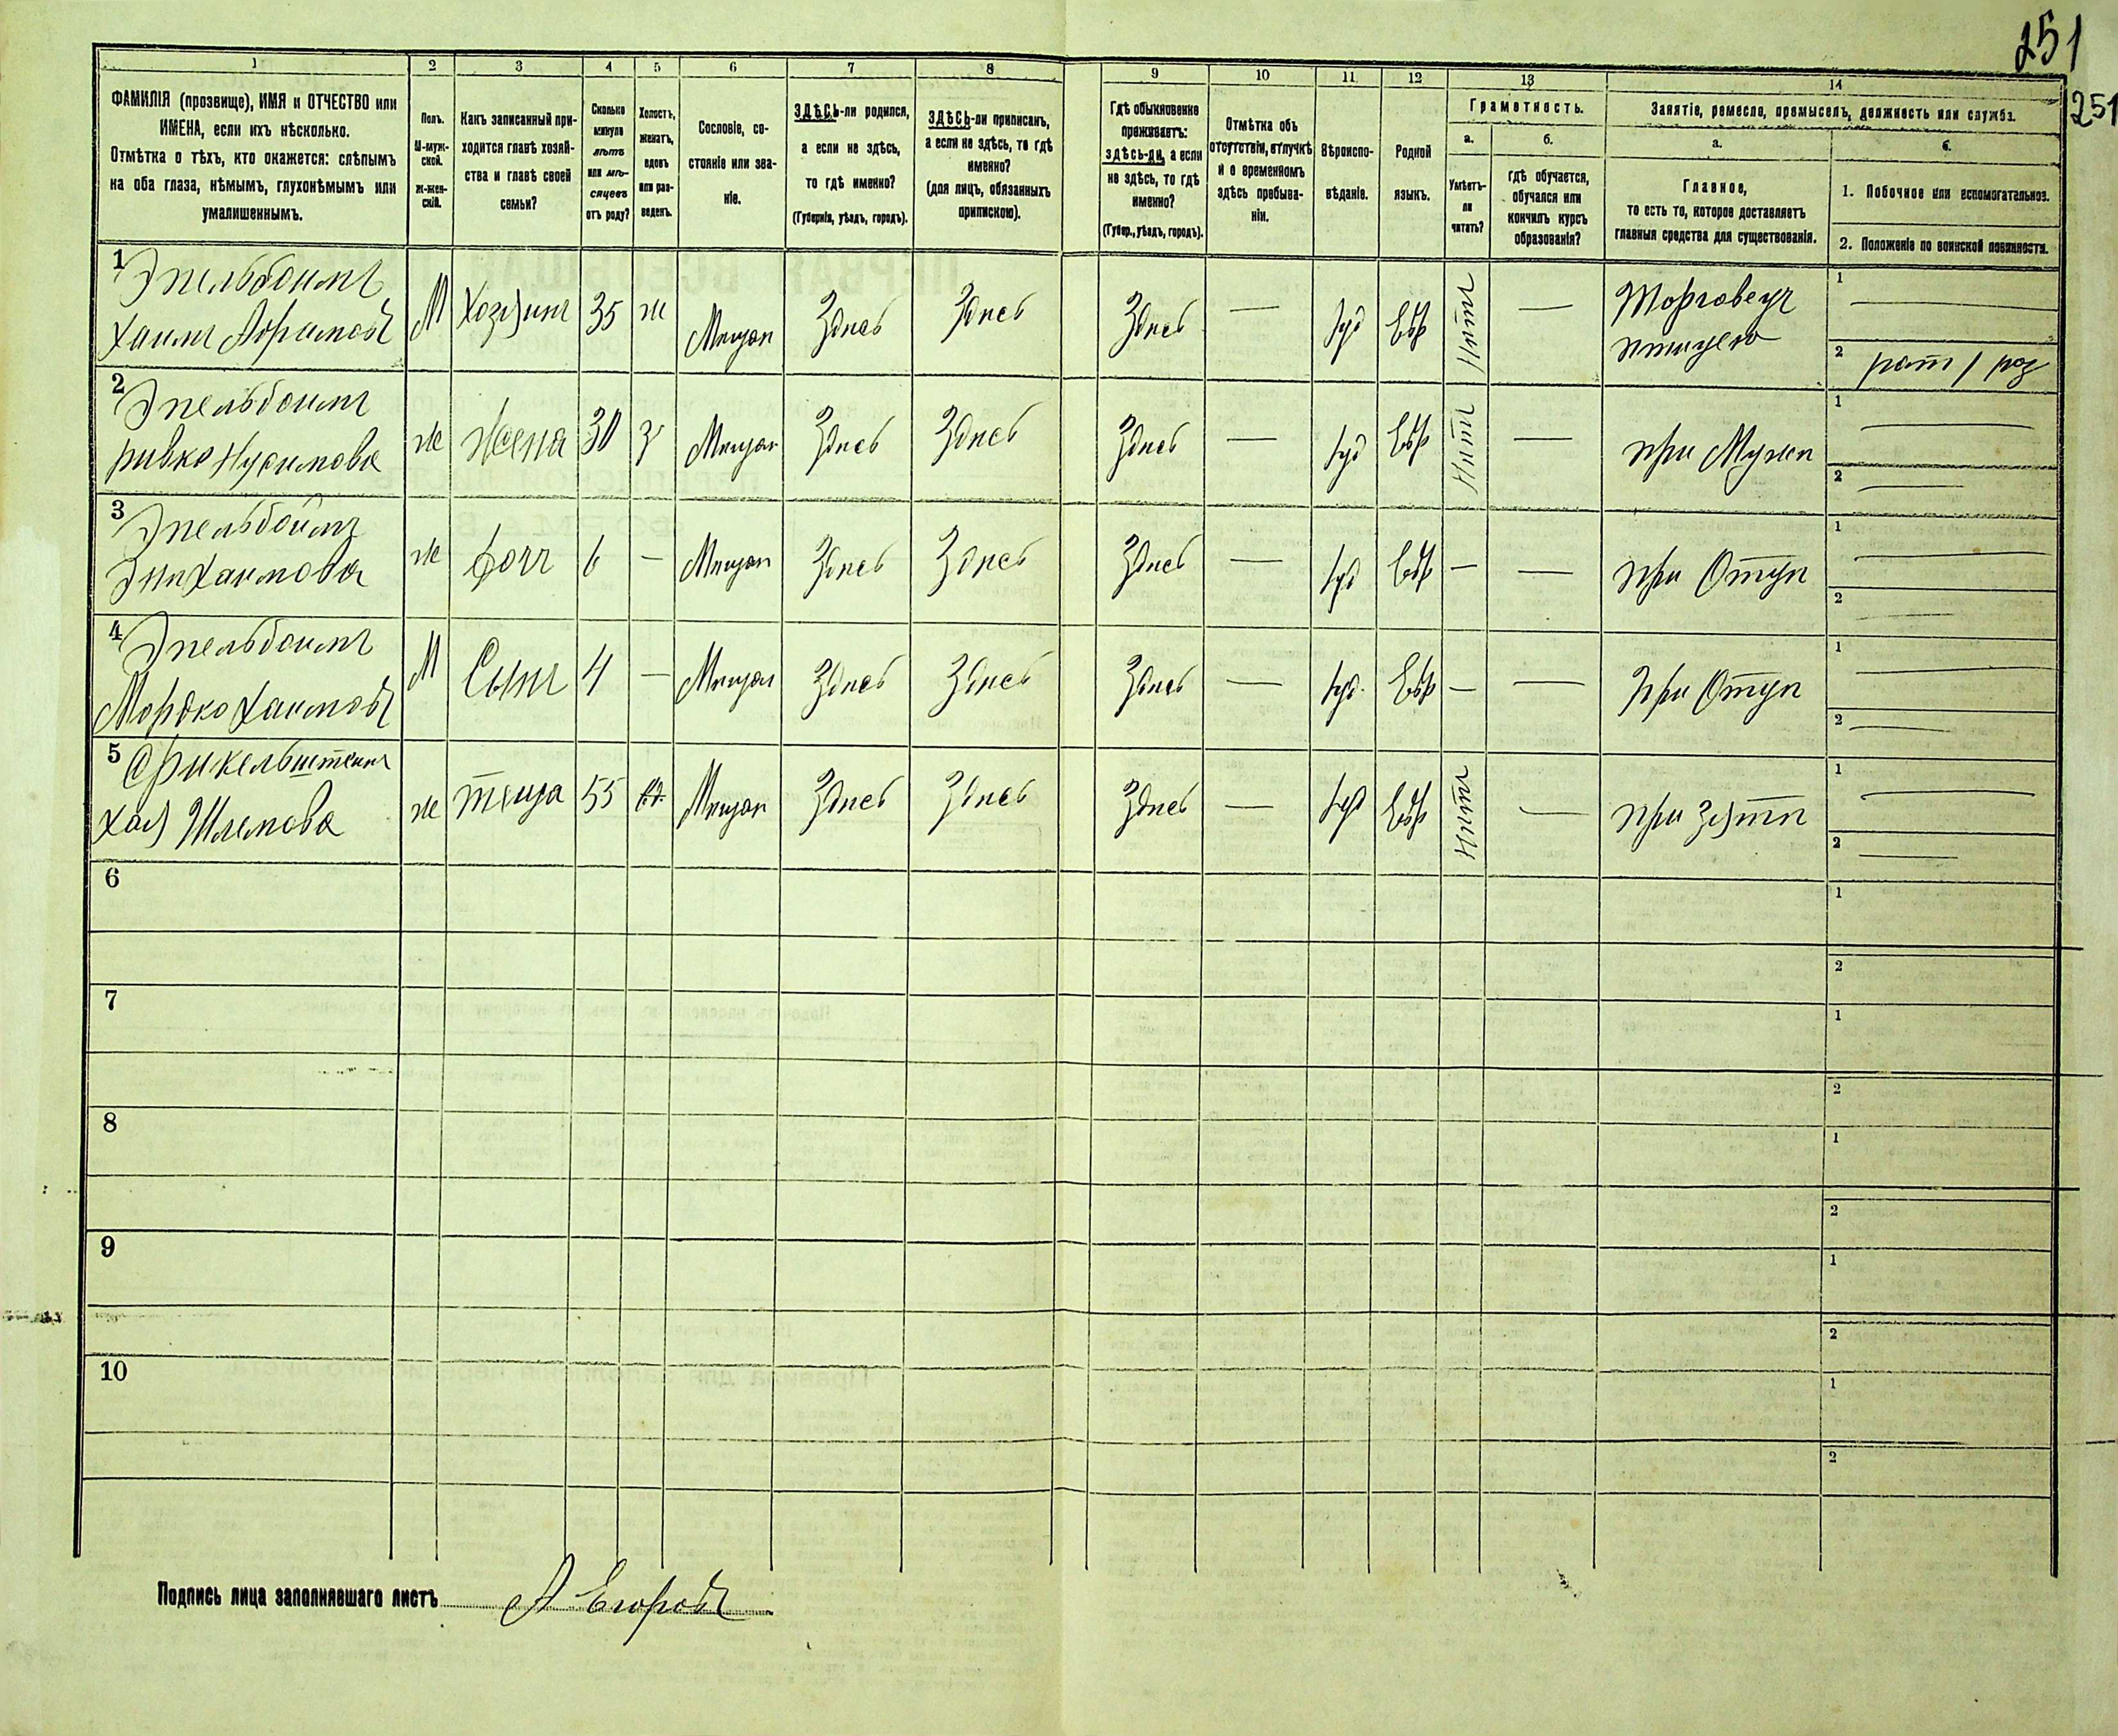 251
251
1 2 3 4 5 6 7 8 9 10 11 12 13 14
ФАМИЛІЯ (прозвище), ИМЯ и ОТЧЕСТВО или
ИМЕНА, если ихъ нѣсколько.
Отмѣтка о тѣхъ, кто окажется: слѣпымъ
на оба глаза, нѣмымъ, глухонѣмымъ или
умалишеннымъ.
Полъ.
М-муж-
ской.
ж-жен-
скій.
Какъ записанный при-
ходится главѣ хозяй-
ства и главѣ своей
семьи?
Сколько
минуло
лѣтъ
или мѣ-
сяцевъ
отъ роду?
Холостъ,
женатъ,
вдовъ
или раз-
веденъ.
Сословіе, со-
стояніе или зва-
ніе.
ЗДѢСЬ-ли родился,
а если не здѣсь,
то гдѣ именно?
(Губернія, уѣздъ, городъ).
ЗДѢСЬ-ли приписанъ,
а если не здѣсь, то гдѣ
именно?
(для лицъ, обязанныхъ
припискою).
Гдѣ обыкновенно
проживаетъ:
здѣсь-ли, а если
не здѣсь, то гдѣ
именно?
(Губер., уѣздъ, городъ).
Отмѣтка объ
отсутствіи, отлучкѣ
и о временномъ
здѣсь пребыва-
ніи.
Вѣроиспо-
вѣданіе.
Родной
языкъ.
Грамотность.
а.
Умѣетъ-
ли
читать?
б.
гдѣ обучается,
обучался или
кончилъ курсъ
образованія?
Занятіе, ремесло, промыселъ, должность или служба.
а.
Главное,
то есть то, которое доставляетъ
главныя средства для существованія.
б.
1. Побочное или вспомогательное.
2. Положеніе по воинской повинности.
1 Эпельбоимъ
Хаимъ Абрамовъ М Хозяинъ 35 ж Мещан Здѣсь Здѣсь Здѣсь — Іуд Евр Нѣтъ — Торговецъ
птицею
1 —
2 рат 1 раз
2 Эпельбоимъ
Ривка Нусимова ж жена 30 з Мещан Здѣсь Здѣсь Здѣсь — Іуд Евр Нѣтъ — при Мужѣ
1 —
2 —
3 Эпельбоимъ
Хаимова ж дочь 6 — Мещан Здѣсь Здѣсь Здѣсь — Іуд Евр — — при Отцѣ
1 —
2 —
4 Эпельбоимъ
Мордко Хаимовъ М Сынъ 4 — Мещан Здѣсь Здѣсь Здѣсь — Іуд. Евр — — при Отцѣ
1 —
2 —
5 Фрикельштеинъ
Хая Шлемова ж теща 55 вд. Мещан Здѣсь Здѣсь Здѣсь — Іуд Евр Нѣтъ — при зятѣ
1 —
2 —
6
1
2
7
1
2
8
1
2
9
1
2
10
1
2
Подпись лица заполнявшаго листъ А Егоровъ